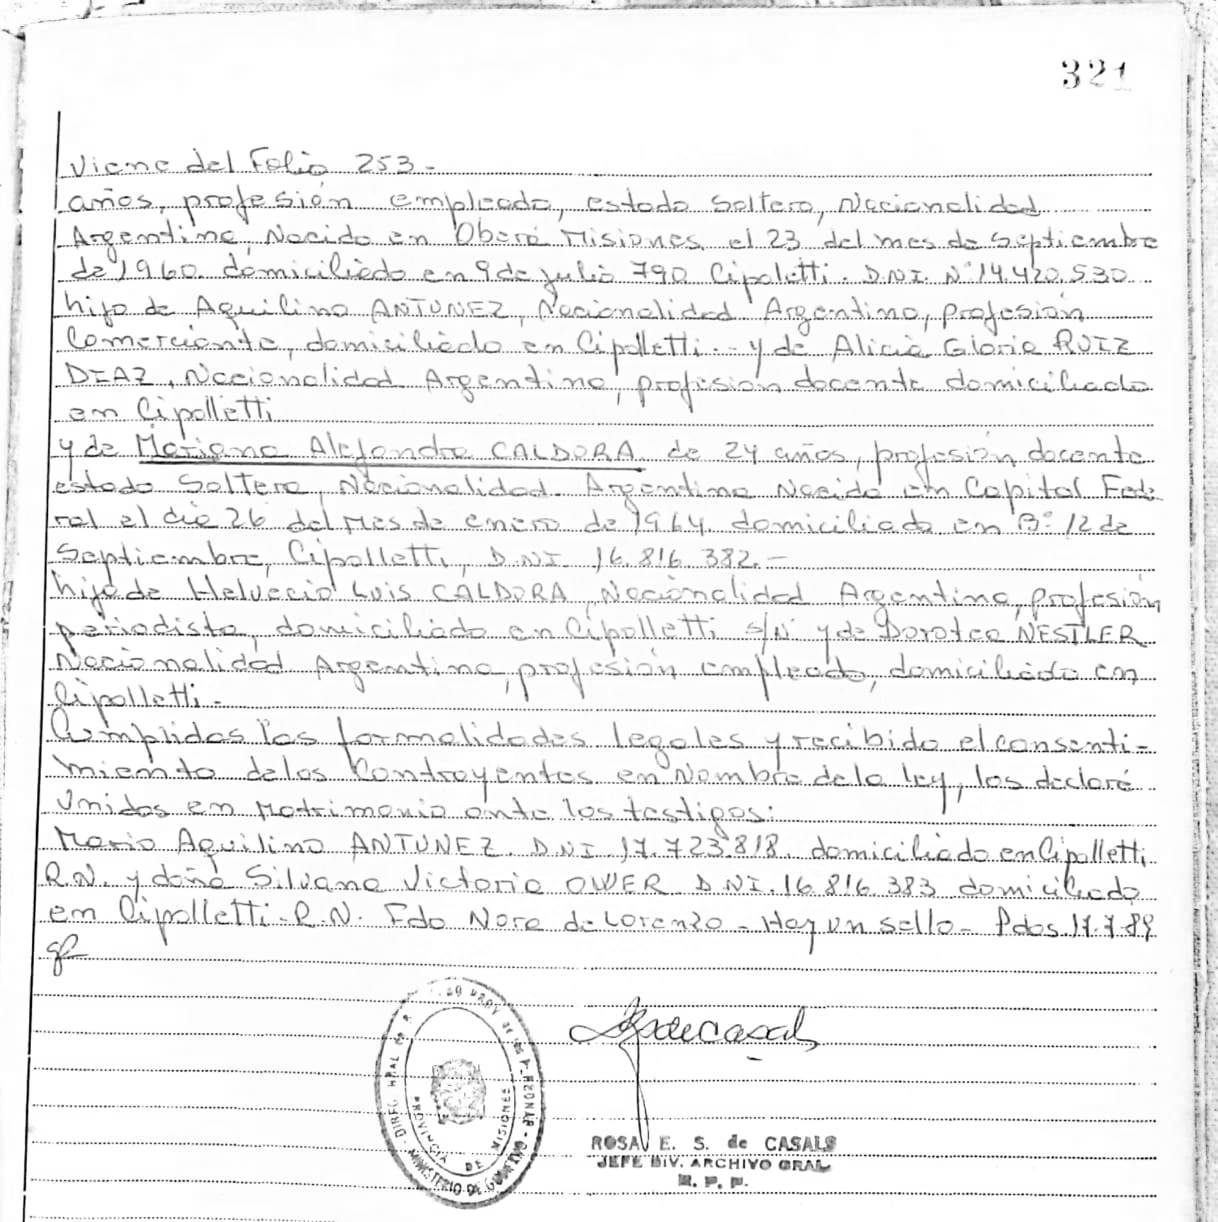 321
Viene del Folio 253.-
años, profesión empleado, estado Soltero, Nacionalidad
Argentina, Nacido en Oberá Misiones el 23 del mes de Septiembre
de 1960. domiciliado en 9 de Julio 790 Cipoletti. D.N.I. N° 14.420.530.
hijo de Aquilino ANTUNEZ, Nacionalidad Argentino, profesión
Comerciante, domiciliado en Cipolletti.- y de Alicia Gloria RUIZ
DIAZ, Nacionalidad Argentina, profesión docente domiciliada
en Cipolletti
y de Mariana Alejandra CALDORA de 24 años, profesión docente
estado Soltera, Nacionalidad Argentina Nacida en Capital Fede
ral el día 26 del mes de enero de 1964 domiciliada en B° 12 de
Septiembre, Cipolletti, D.NI. 16.816.382.-
hija de Helveccio Luis CALDORA, Nacionalidad Argentino, profesión
periodista, domiciliado en Cipolletti s/N y de Dorotea NESTLER
Nacionalidad Argentina, profesión empleada, domiciliada en
Cipolletti.-
Cumplidas las formalidades legales y recibido el consenti-
miento de los Contrayentes en Nombre de la ley, los declaré
Unidos en Matrimonio ante los testigos:
Mario Aquilino ANTUNEZ. D.N.I 17.723.818. domiciliado en Cipolletti
R.N. y doña Silvana Victoria OWER D.NI. 16.816.383 domiciliada
en Cipolletti. R.N. Fdo Nora de Lorenzo - Hay un sello - Pdas 17.7.89
DIREC. GRAL de de las PERSONAS
PROVINCIA DE MISIONES
MINISTERIO DE GOBIERNO
ROSA E. S. de CASALS
JEFE DIV. ARCHIVO GRAL
R. P. P.